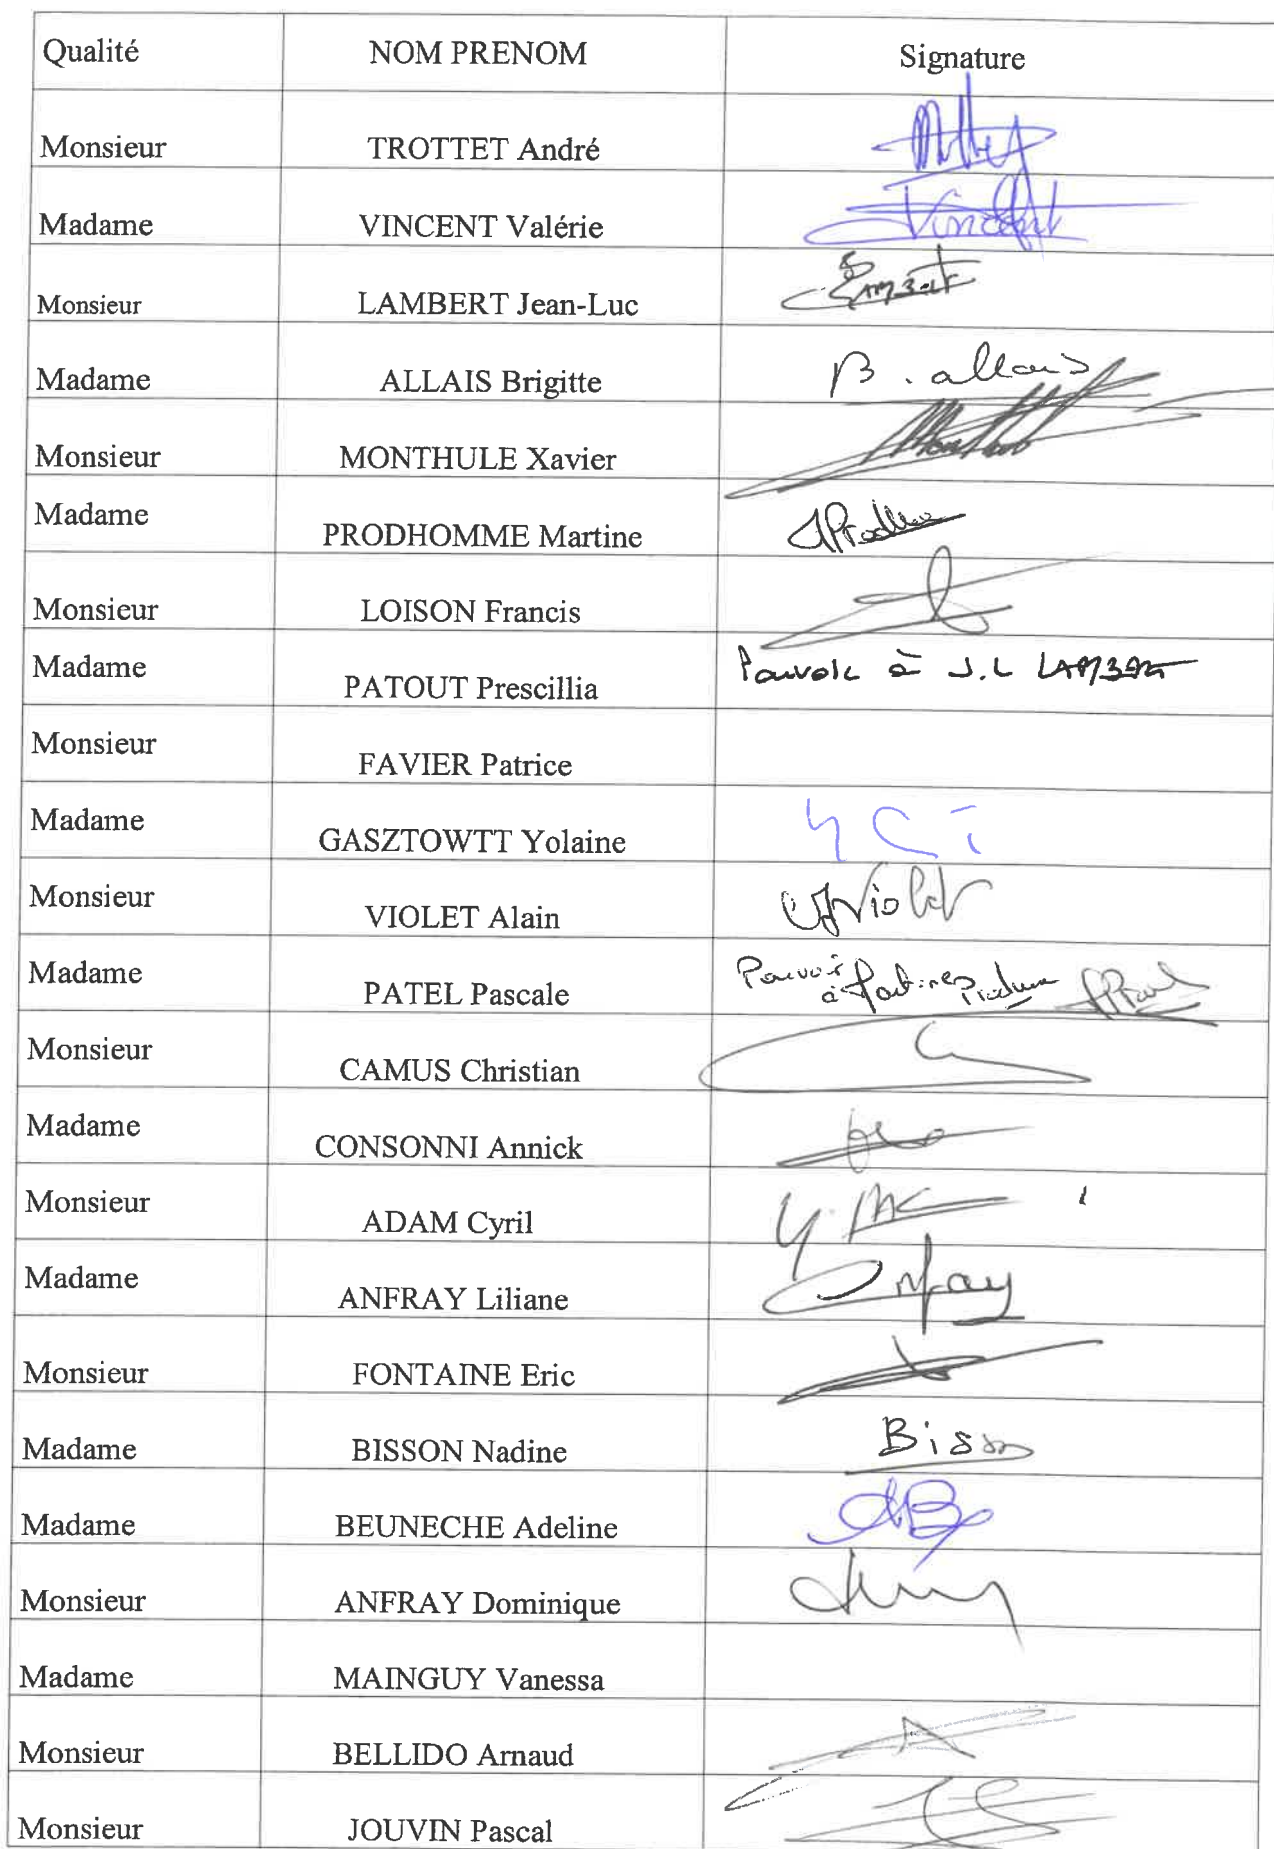 Qualité NOM PRENOM Signature
Monsieur TROTTET André
Madame VINCENT Valérie Vincent
Monsieur LAMBERT Jean-Luc
Madame ALLAIS Brigitte B. allais
Monsieur MONTHULE Xavier
Madame PRODHOMME Martine
Monsieur LOISON Francis
Madame PATOUT Prescillia Pouvoir à J.L LAMBERT
Monsieur FAVIER Patrice
Madame GASZTOWTT Yolaine
Monsieur VIOLET Alain Violet
Madame PATEL Pascale Pouvoir
à
Monsieur CAMUS Christian
Madame CONSONNI Annick
Monsieur ADAM Cyril
Madame ANFRAY Liliane Anfray
Monsieur FONTAINE Eric
Madame BISSON Nadine Bisson
Madame BEUNECHE Adeline AB
Monsieur ANFRAY Dominique
Madame MAINGUY Vanessa
Monsieur BELLIDO Arnaud
Monsieur JOUVIN Pascal